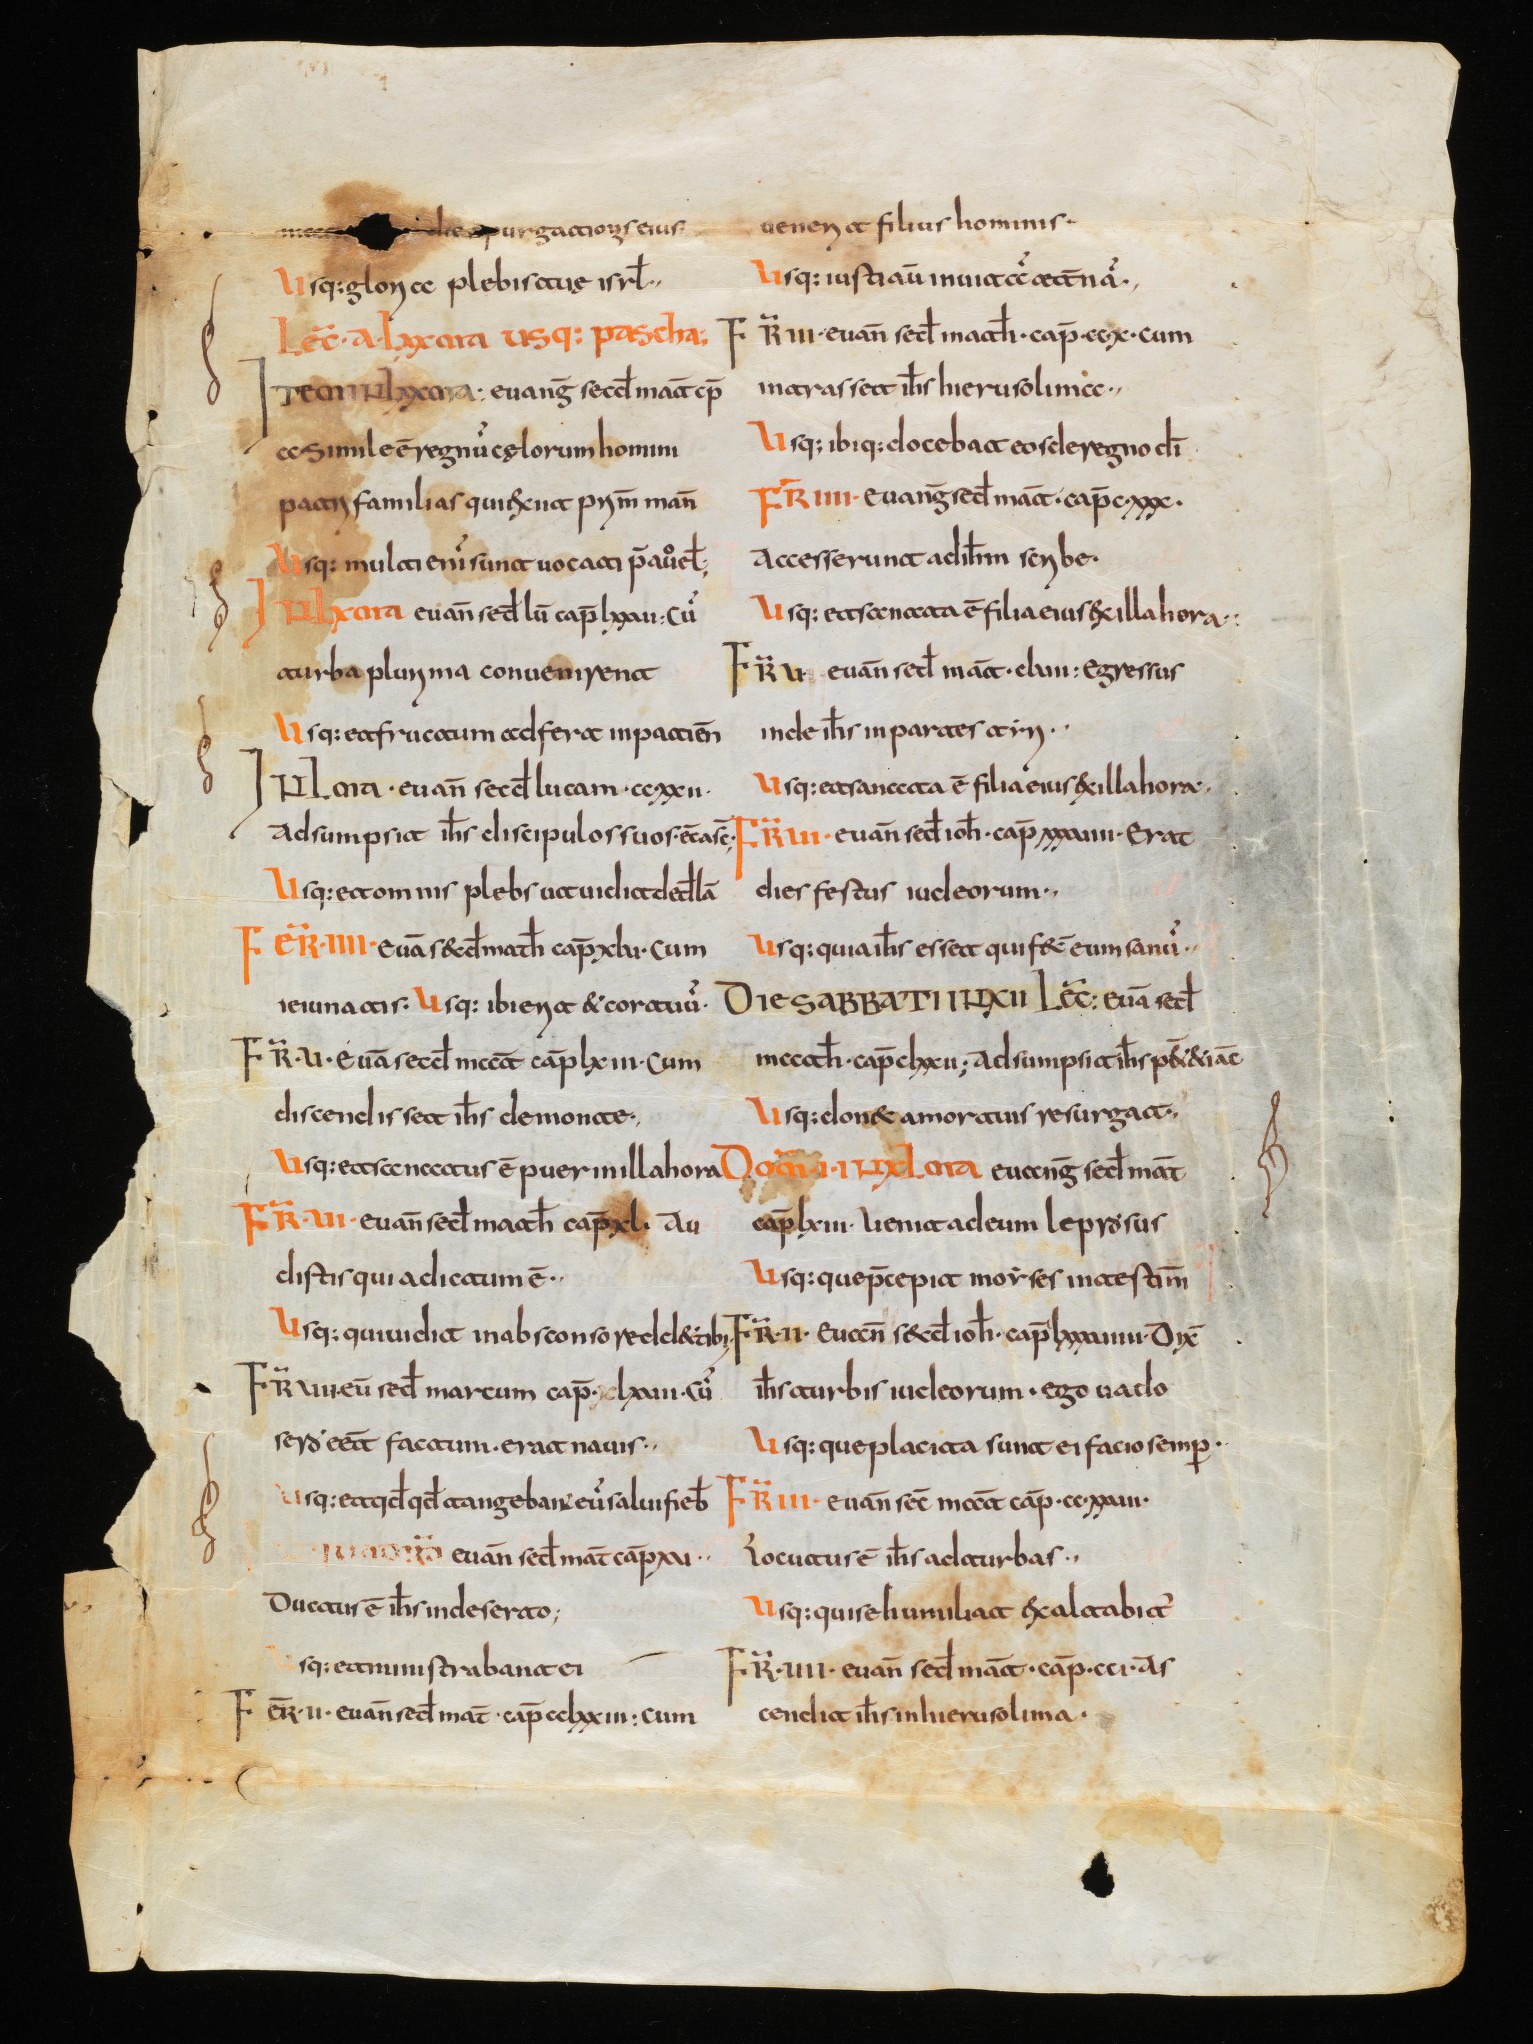 die purgationis eius
Usq: gloria plebis tuę isrl̄.
Lec̄. A. lxxma usq: pascha;
ITEM IN lxxma: evang̅ secd̄ mat̄ cp̄
cc Simile ē regnū cęlorum homini
patri familias qui exiit prim̄ man̄
Usq: multi enī sunt vocati p̄au v̊ el̄;
IN lxma evan̄ secd̄ lū cap̄ lxxvi: Cū
turba plurima convenirent
Usq: et fructum adfert in patien̄
IN Lma. evan̄ secd̄ lucam. ccxxii.
Adsumpsit ih̄s discipulos suos. et ascē;
Usq: et omnis plebs ut vidit ded̄ lā
FER̄. IIII. Evā secd̄ math̄ cap̄ xlv. Cum
ieiunatis: Usq: ibi erit & cor tuū.
FR̄. V. Evā secd̄ mat̄ cap̄ lxiii. Cum
discendisset ih̄s de monte.
Usq: et sanatus ē puer in illa hora
FR̄. VI. evan̄ secd̄ math̄ cap̄ xl. Au
distis quia dictum ē.
Usq: qui vidit in absconso redd& tibi.
FR̄ VII. eū secd̄ marcum cap̄. lxvii. Cū
sero eēt factum. erat navis.
Usq: et qđ qđ tangebant eū salvi fieb̄
evan̄ secd̄ mat̄ cap̄ xvi.
Ductus ē ih̄s in deserto;
Usq: et ministrabant ei
FER̄. II. evan̄ secd̄ mat̄. cap̄ cclxxiii: Cum
venerit filius hominis.
Usq: iusti aū in vitā ętnā.
FR̄ III. evan̄ secd̄ math̄. cap̄. ccx. Cum
intrasset ih̄s hierusolima.
Usq: ibiq: docebat eos de regno dī
FR̄ IIII. Evang̅ secd̄ mat̄. cap̄ c.xxx.
Accesserunt ad ih̄m scribe.
Usq: et sanata ē filia eius ex illa hora.
FR̄ V. evan̄ secd̄ mat̄. clvii: Egressus
inde ih̄s in partes tiri.
Usq: et sanata ē filia eius ex illa hora.
FR̄ VI. evan̄ secd̄ ioh̄. cap̄ xxxviiii. Erat
dies festus iudeorum.
Usq: quia ih̄s esset qui fec̄ eum sanū.
DIE SABBATI IN XII Lec̄: Evā secd̄
math̄. cap̄ clxxii; Adsumpsit ih̄s p& & iac̄
Usq: don& a mortuis resurgat.
Dom̄ I. IN xLma evang̅ secd̄ mat̄
cap̄ lxiii. Venit ad eum leprosus
Usq: que p̄cepit moyses in testim̄
FR̄. II. Evan̄ secd̄ ioh̄. cap̄ lxxxviiii. Dix̄
ih̄s turbis iudeorum. ego vado
Usq: que placita sunt ei facio semp̄.
FR̄ III. evan̄ sec̄ mat̄ cap̄. cc.xxviii.
Locutus ē ih̄s ad turbas.
Usq: qui se humiliat exaltabit̄
FR̄. IIII. evan̄ secd̄ mat̄. cap̄. cci. As
cendit ih̄s in hierusolima.